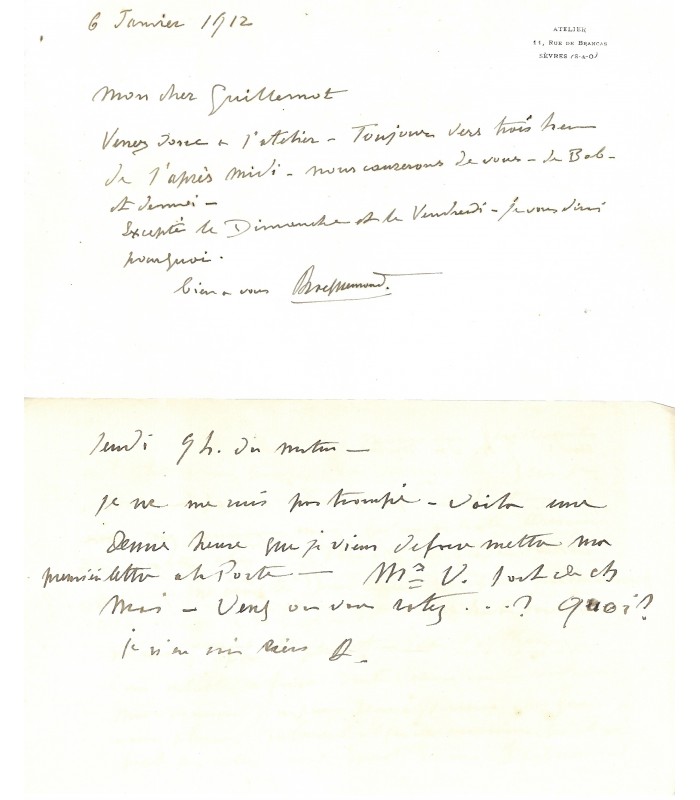 6 Janvier 1912
ATELIER
11, RUE DE BRANCAS
SÈVRES (S-&-O)
Mon cher Guillemot
Venez donc à l'atelier - Toujours vers trois heures
de l'après midi - nous causerons de vous - de Bab-
et de moi -
Excepté le Dimanche et le Vendredi - je vous dirai
pourquoi.
bien à vous Bracquemond.
Jeudi 9 h. du matin -
je ne me suis pas trompé - Voilà une
demie heure que je viens de faire mettre ma
première lettre à la Poste - Mr V. sort de ch
Moi - Venez ou vous ... ? Quoi?
je n'en sais rien B.